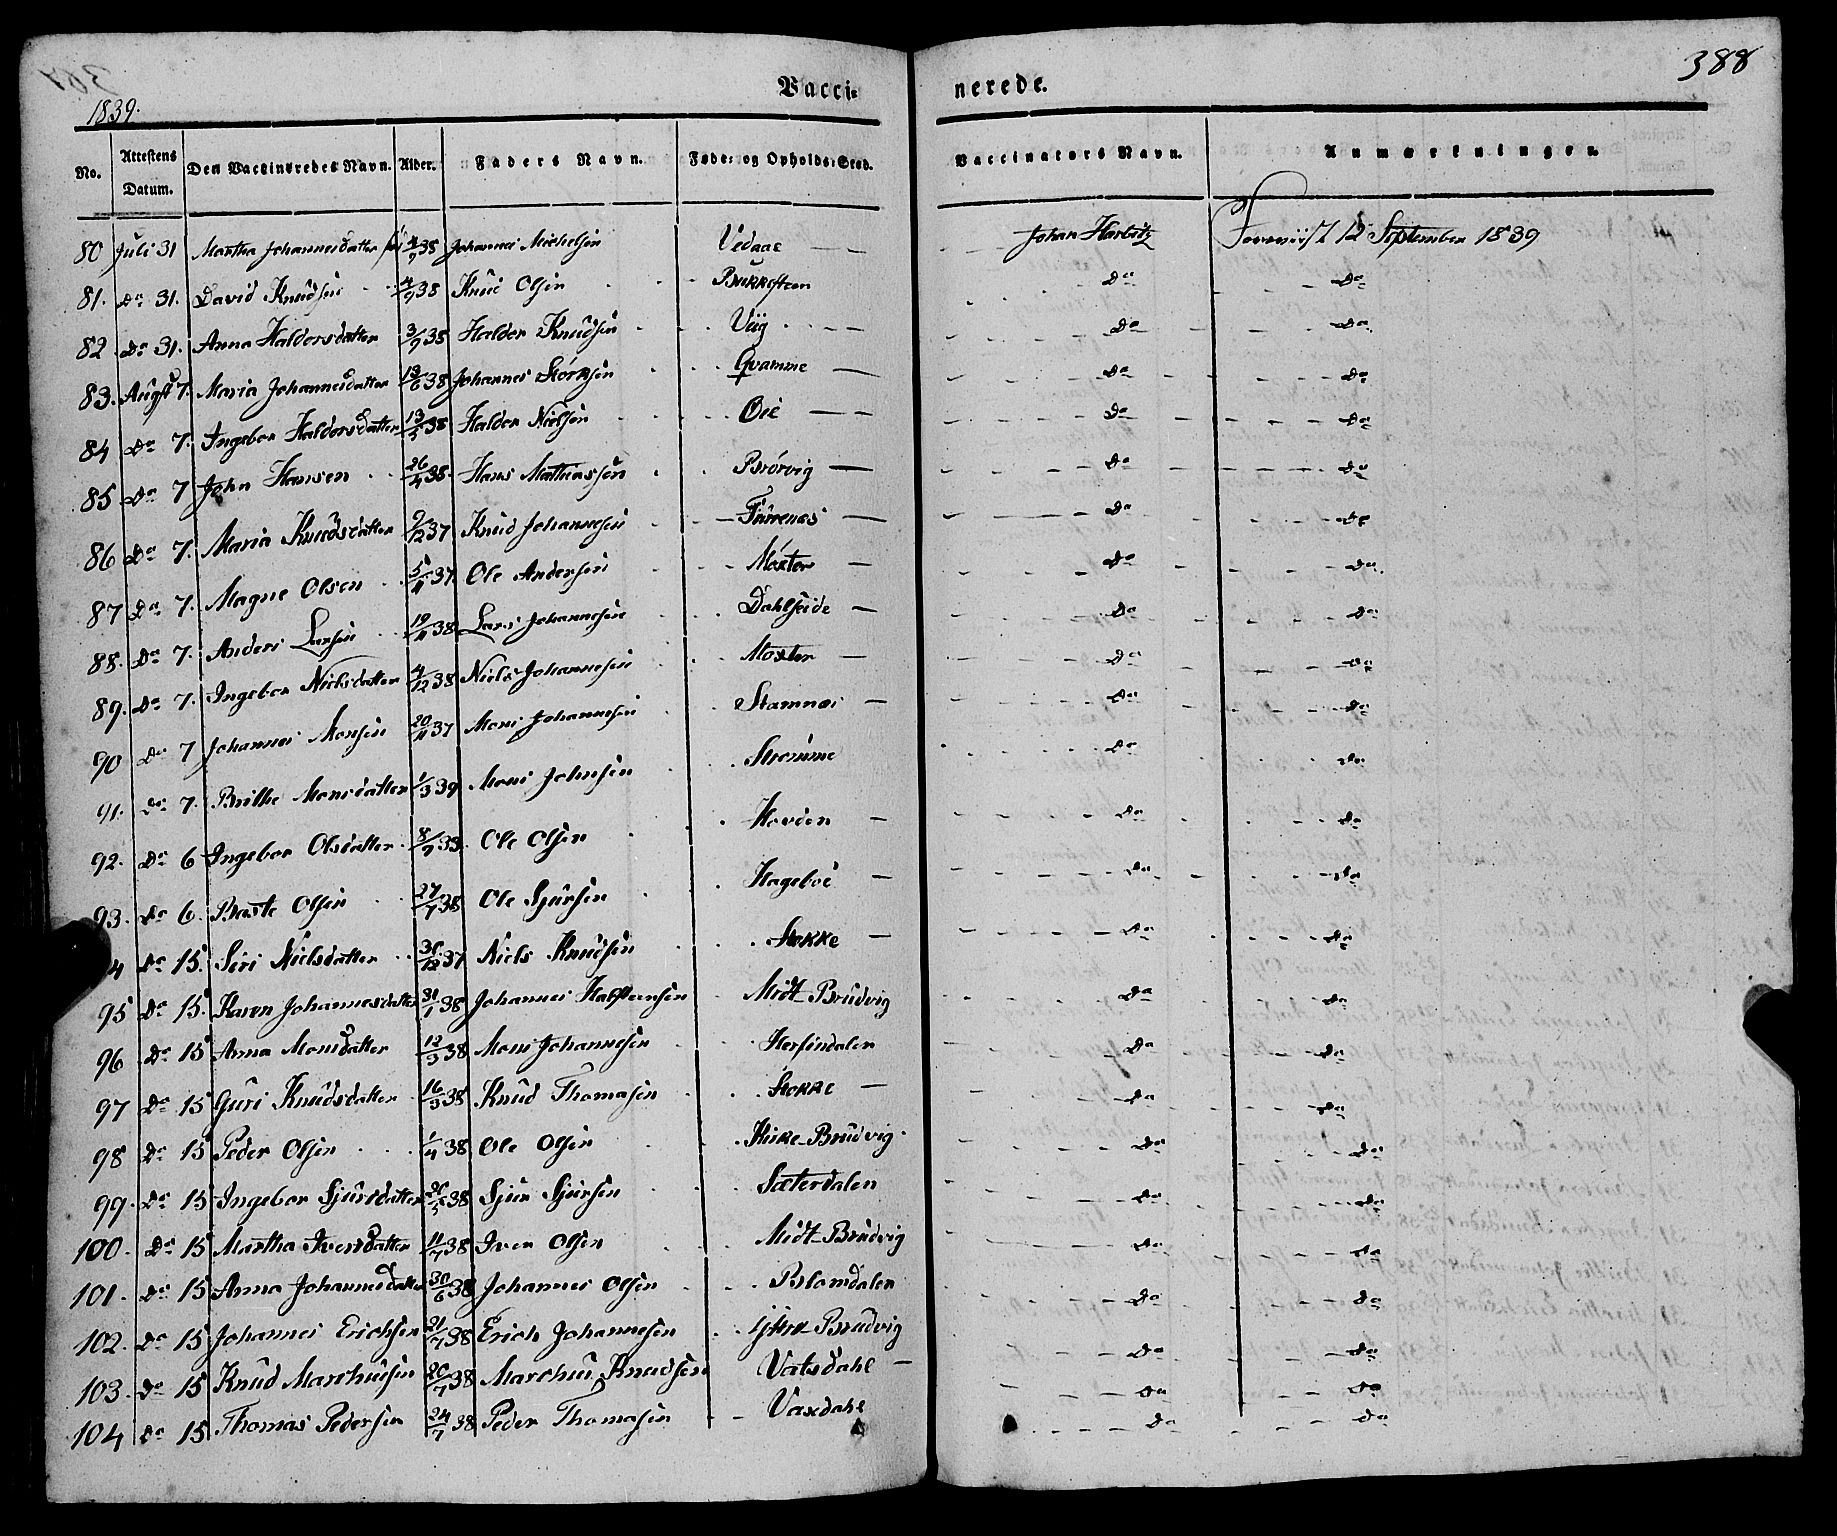 388
1839.
Vacci= nerede.
No. Attestens Datum. Den Vaccineredes Navn. Alder. Faders Navn. Føde= og Opholds=Sted. Vaccinators Navn. Anmærkninger.
80 Juli 31 Martha Johannesdatter 4/9 38 Johannes Michelsen Vedaae Johan Harbitz Foreviist 12 September 1839
81. Do 31. David Knudsen 4/9 38 Knud Olsen Brekkesteen Do Do
82 Do 31. Anna Haldorsdatter 3/9 38 Haldor Knudsen Viig Do Do
83. Augst 7. Maria Johannesdatter 13/6 38 Johannes Størksen Qvamme Do Do
84 Do 7. Ingebor Haldorsdatter 13/5 38 Haldor Nielsen Øie Do Do
85 Do 7 John Hansen 26/4 38. Hans Mathiassen Brørvig Do Do
86 Do 7. Maria Knudsdatter 9/12 37 Knud Johannesen Furrenæs Do Do
87 Do 7. Magne Olsen 5/11 37. Ole Andersen Moster Do Do
88. Do 7. Anders Larsen 19/11 38 Lars Johannesen Dahlseide Do Do
89. Do 7. Ingebor Nielsdatter 4/12 38 Niels Johannesen Moster Do Do
90 Do 7 Johannes Monsen 20/11 37 Mons Johannesen Stamnæs Do Do
91. Do 7. Brithe Monsdatter 1/3 39 Mons Johnsen Stromme Do Do
92. Do 6 Ingebor Olsdatter 8/9 33. Ole Olsen Hovden Do Do
93. Do 6. Baste Olsen 27/7 38 Ole Sjursen Hageboe Do Do
4 Do 15. Siri Nielsdatter 31/12 37 Niels Knudsen Stokke Do Do
95 Do 15. Karen Johannesdatter 31/1 38 Johannes Halsteensen Midt-Brudvig Do Do
96 Do 15 Anna Monsdatter 12/3 38 Mons Johannesen Herfindalen Do Do
97 Do 15 Guri Knudsdatter 16/3 38 Knud Thomasen Stokke Do Do
98 Do 15 Peder Olsen 1/4 38 Ole Olsen Kirke-Brudvig Do Do
99. Do 15 Ingebor Sjursdatter 26/5 38 Sjur Sjursen Sæterdalen Do Do
100. Do 15 Martha Iversdatter 11/7 38 Iver Olsen Midt-Brudvig Do Do
101. Do 15 Anna Johannesdatter 30/6 38 Johannes Olsen Blomdalen Do Do
102. Do 15 Johannes Erichsen 21/7 38 Erich Johannesen Ijttre Brudvig Do Do
103. Do 15 Knud Marchusen 20/7 38 Marchus Knudsen Vatsdahl Do Do
104 Do 15 Thomas Pedersen 24/7 38 Peder Thomasen Vaxdahl Do Do